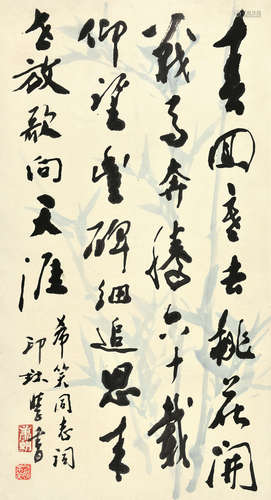 春回寒去桃花開
戰馬奔騰六十載
仰望豐碑細追思來
者放歌向天涯
希笑同志詞
書